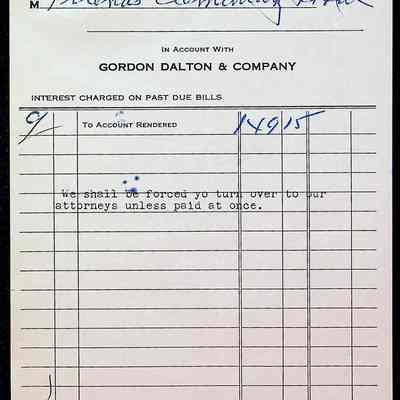 M
IN ACCOUNT WITH
GORDON DALTON & COMPANY
INTEREST CHARGED ON PAST DUE BILLS
TO ACCOUNT RENDERED 149 15
We shall be forced yo turn over to our
attorneys unless paid at once.